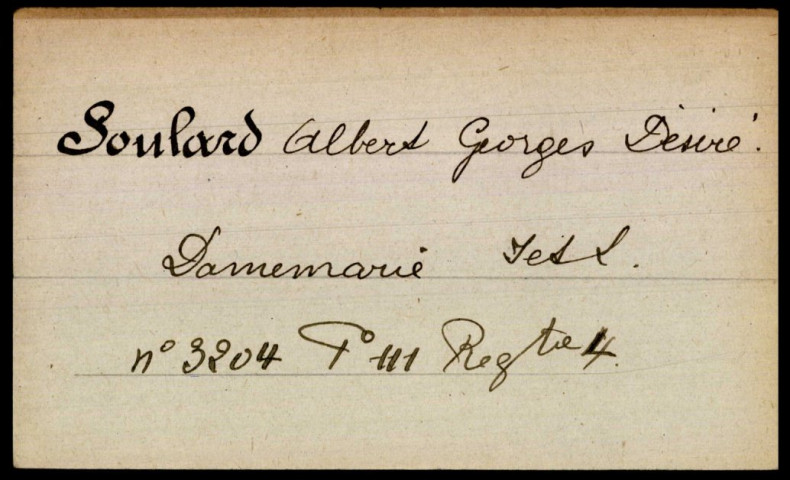 Soulard Albert Georges Désiré.
Damemarie I et L.
n° 3204 F° 111 Regtre 4.